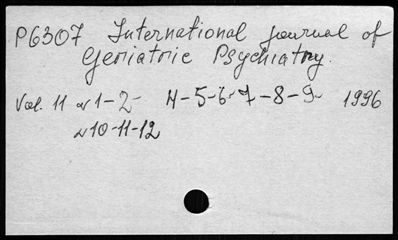 P6307 International journal of
Geriatric Psychiatry.
Vol. 11 N 1-2- 4-5-6-7-8-9- 1996
N 10-11-12